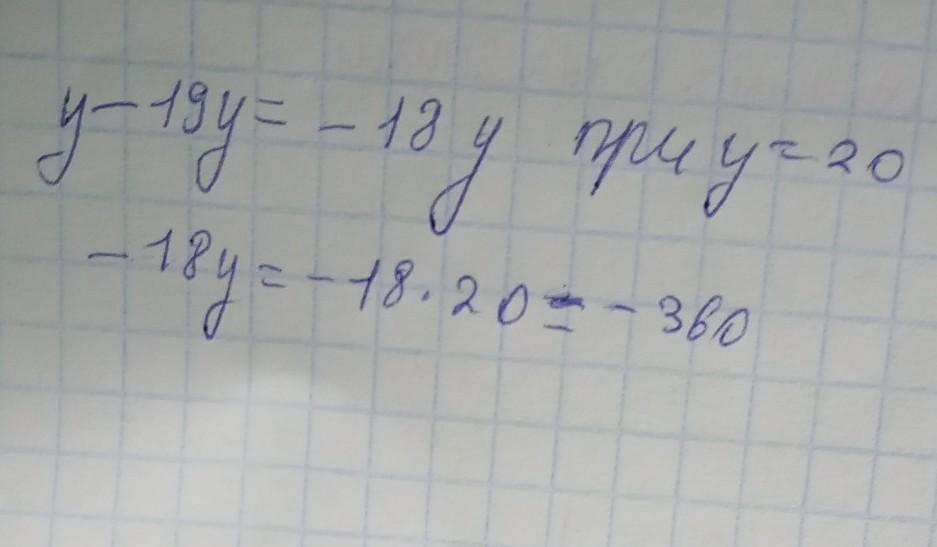 y - 19y = - 18 y при y = 20
- 18y = - 18 · 20 = - 360